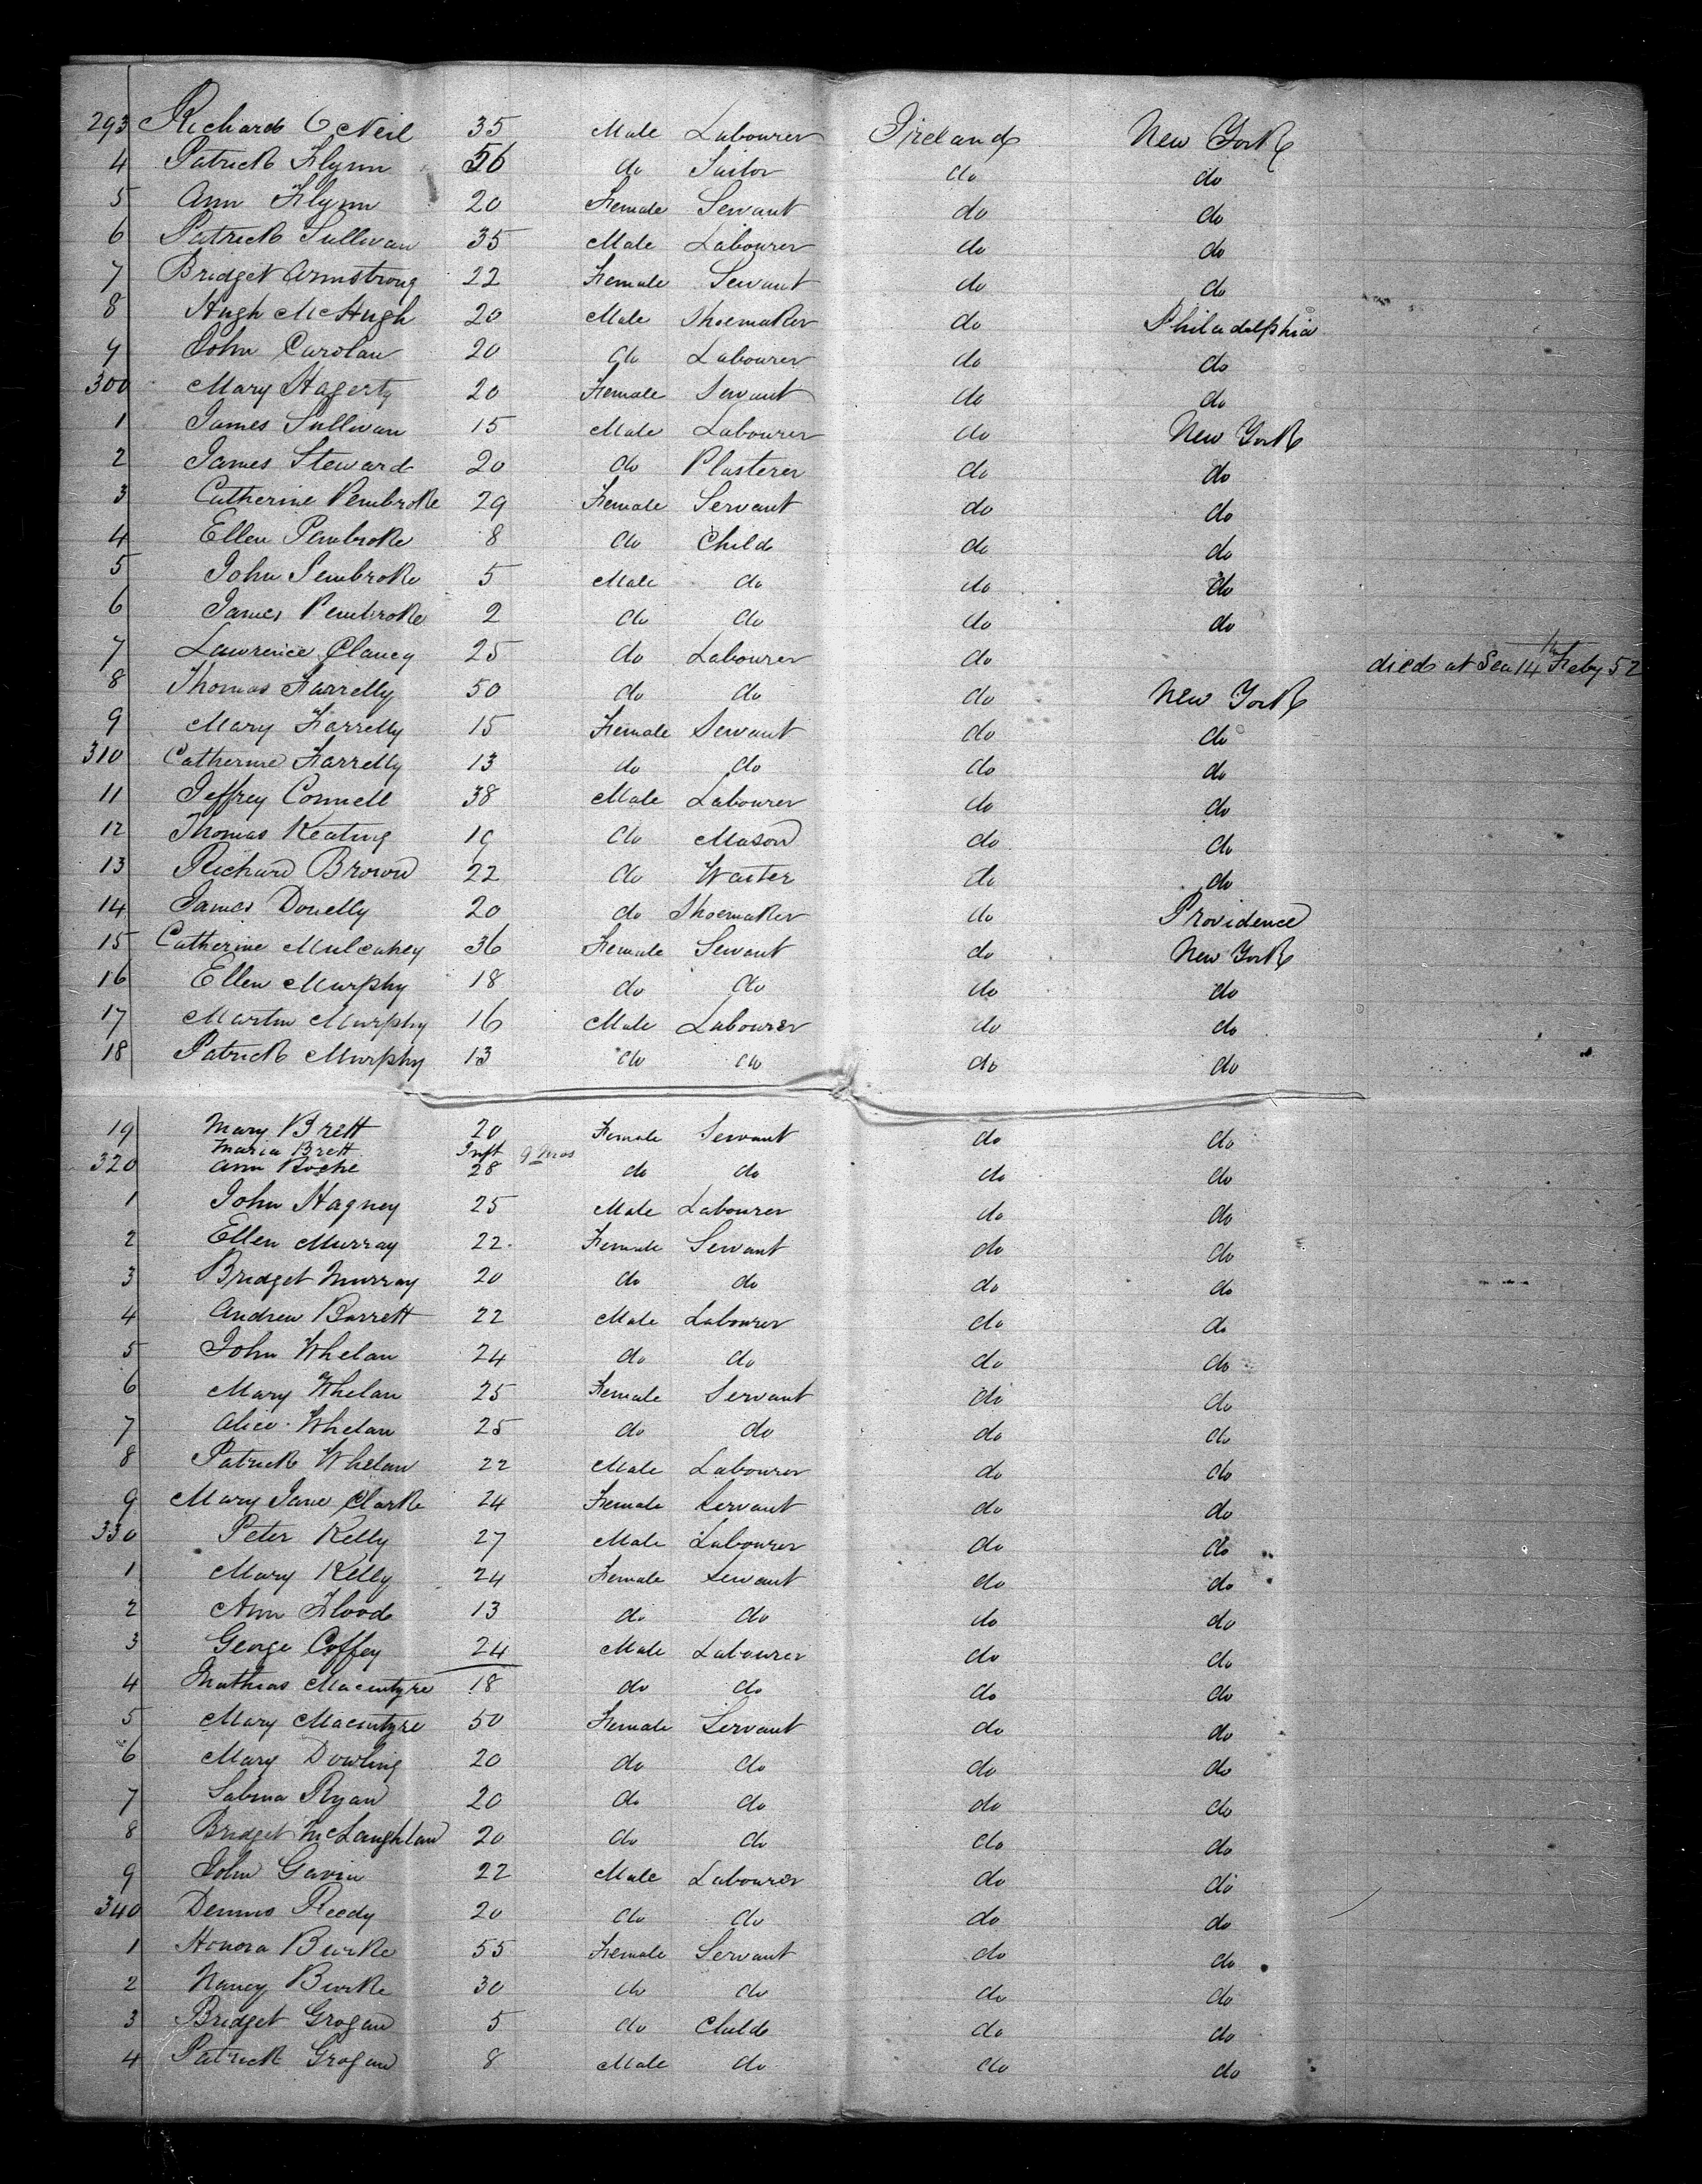 293 Richard O Neil 35 Male Labourer Ireland New York
4 Patrick Flynn 56 do Tailor do do
5 Ann Flynn 20 Female Servant do do
6 Patrick Sullivan 35 Male Labourer do do
7 Bridget Armstrong 22 Female Servant do do
8 Hugh McHugh 20 Male Shoemaker do Philadelphia
9 John Carolan 20 do Labourer do do
300 Mary Hagerty 20 Female Servant do do
1 James Sullivan 15 Male Labourer do New York
2 James Steward 20 do Plasterer do do
3 Catherine Pembroke 29 Female Servant do do
4 Ellen Pembroke 8 do Child do do
5 John Pembroke 5 Male do do do
6 James Pembroke 2 do do do do
7 Lawrence Clancy 25 do Labourer do died at Sea 14th Feby 52
8 Thomas Farrelly 50 do do do New York
9 Mary Farrelly 15 Female Servant do do
310 Catherine Farrelly 13 do do do do
11 Jeffrey Connell 38 Male Labourer do do
12 Thomas Keating 19 do Mason do do
13 Richard Brown 22 do Waiter do do
14 James Donelly 20 do Shoemaker do Providence
15 Catherine Mulcahey 36 Female Servant do New York
16 Ellen Murphy 18 do do do do
17 Martin Murphy 16 Male Labourer do do
18 Patrick Murphy 13 do do do do
19 Mary Brett 20 Female Servant do do
Maria Brett Inft 9 Mos
320 Ann Roche 28 do do do do
1 John Hagney 25 Male Labourer do do
2 Ellen Murray 22 Female Servant do do
3 Bridget Murray 20 do do do do
4 Andrew Barrett 22 Male Labourer do do
5 John Whelan 24 do do do do
6 Mary Whelan 25 Female Servant do do
7 Alice Whelan 25 do do do do
8 Patrick Whelan 22 Male Labourer do do
9 Mary Jane Clarke 24 Female Servant do do
330 Peter Kelly 27 Male Labourer do do
1 Mary Kelly 24 Female Servant do do
2 Ann Flood 13 do do do do
3 George Coffey 24 Male Labourer do do
4 Mathias Macintyre 18 do do do do
5 Mary Macintyre 50 Female Servant do do
6 Mary Dowling 20 do do do do
7 Sabina Ryan 20 do do do do
8 Bridget McLaughlan 20 do do do do
9 John Gavin 22 Male Labourer do do
340 Dennis Reedy 20 do do do do
1 Honora Burke 55 Female Servant do do
2 Nancy Burke 30 do do do do
3 Bridget Grogan 5 do Child do do
4 Patrick Grogan 8 Male do do do